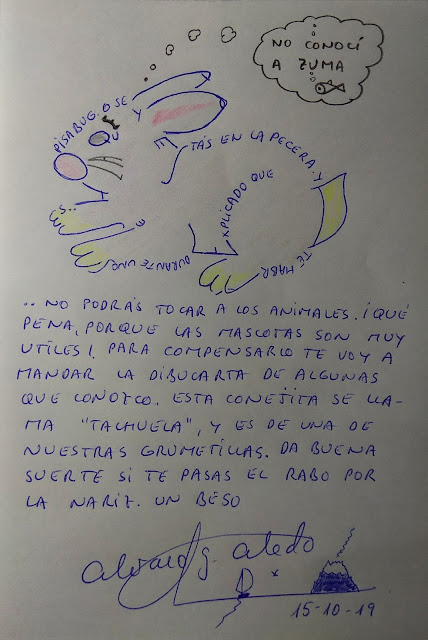 NO CONOCÍ
A ZUMA
PISABUG. O SE
QU
Y
E
TÁS EN LA PECERA. Y
TE HABR
EXPLICADO QUE
DURANTE UNE
S..
.. NO PODRÁS TOCAR A LOS ANIMALES. ¡QUÉ
PENA, PORQUE LAS MASCOTAS SON MUY
UTILES!, PARA COMPENSARLO TE VOY A
MANDAR LA DIBUCARTA DE ALGUNAS
QUE CONOZCO. ESTA CONEJITA SE LLA-
MA "TACHUELA", Y ES DE UNA DE
NUESTRAS GRUMETILLAS. DA BUENA
SUERTE SI TE PASAS EL RABO POR
LA NARIZ. UN BESO
alvaro g. aledo
15-10-19